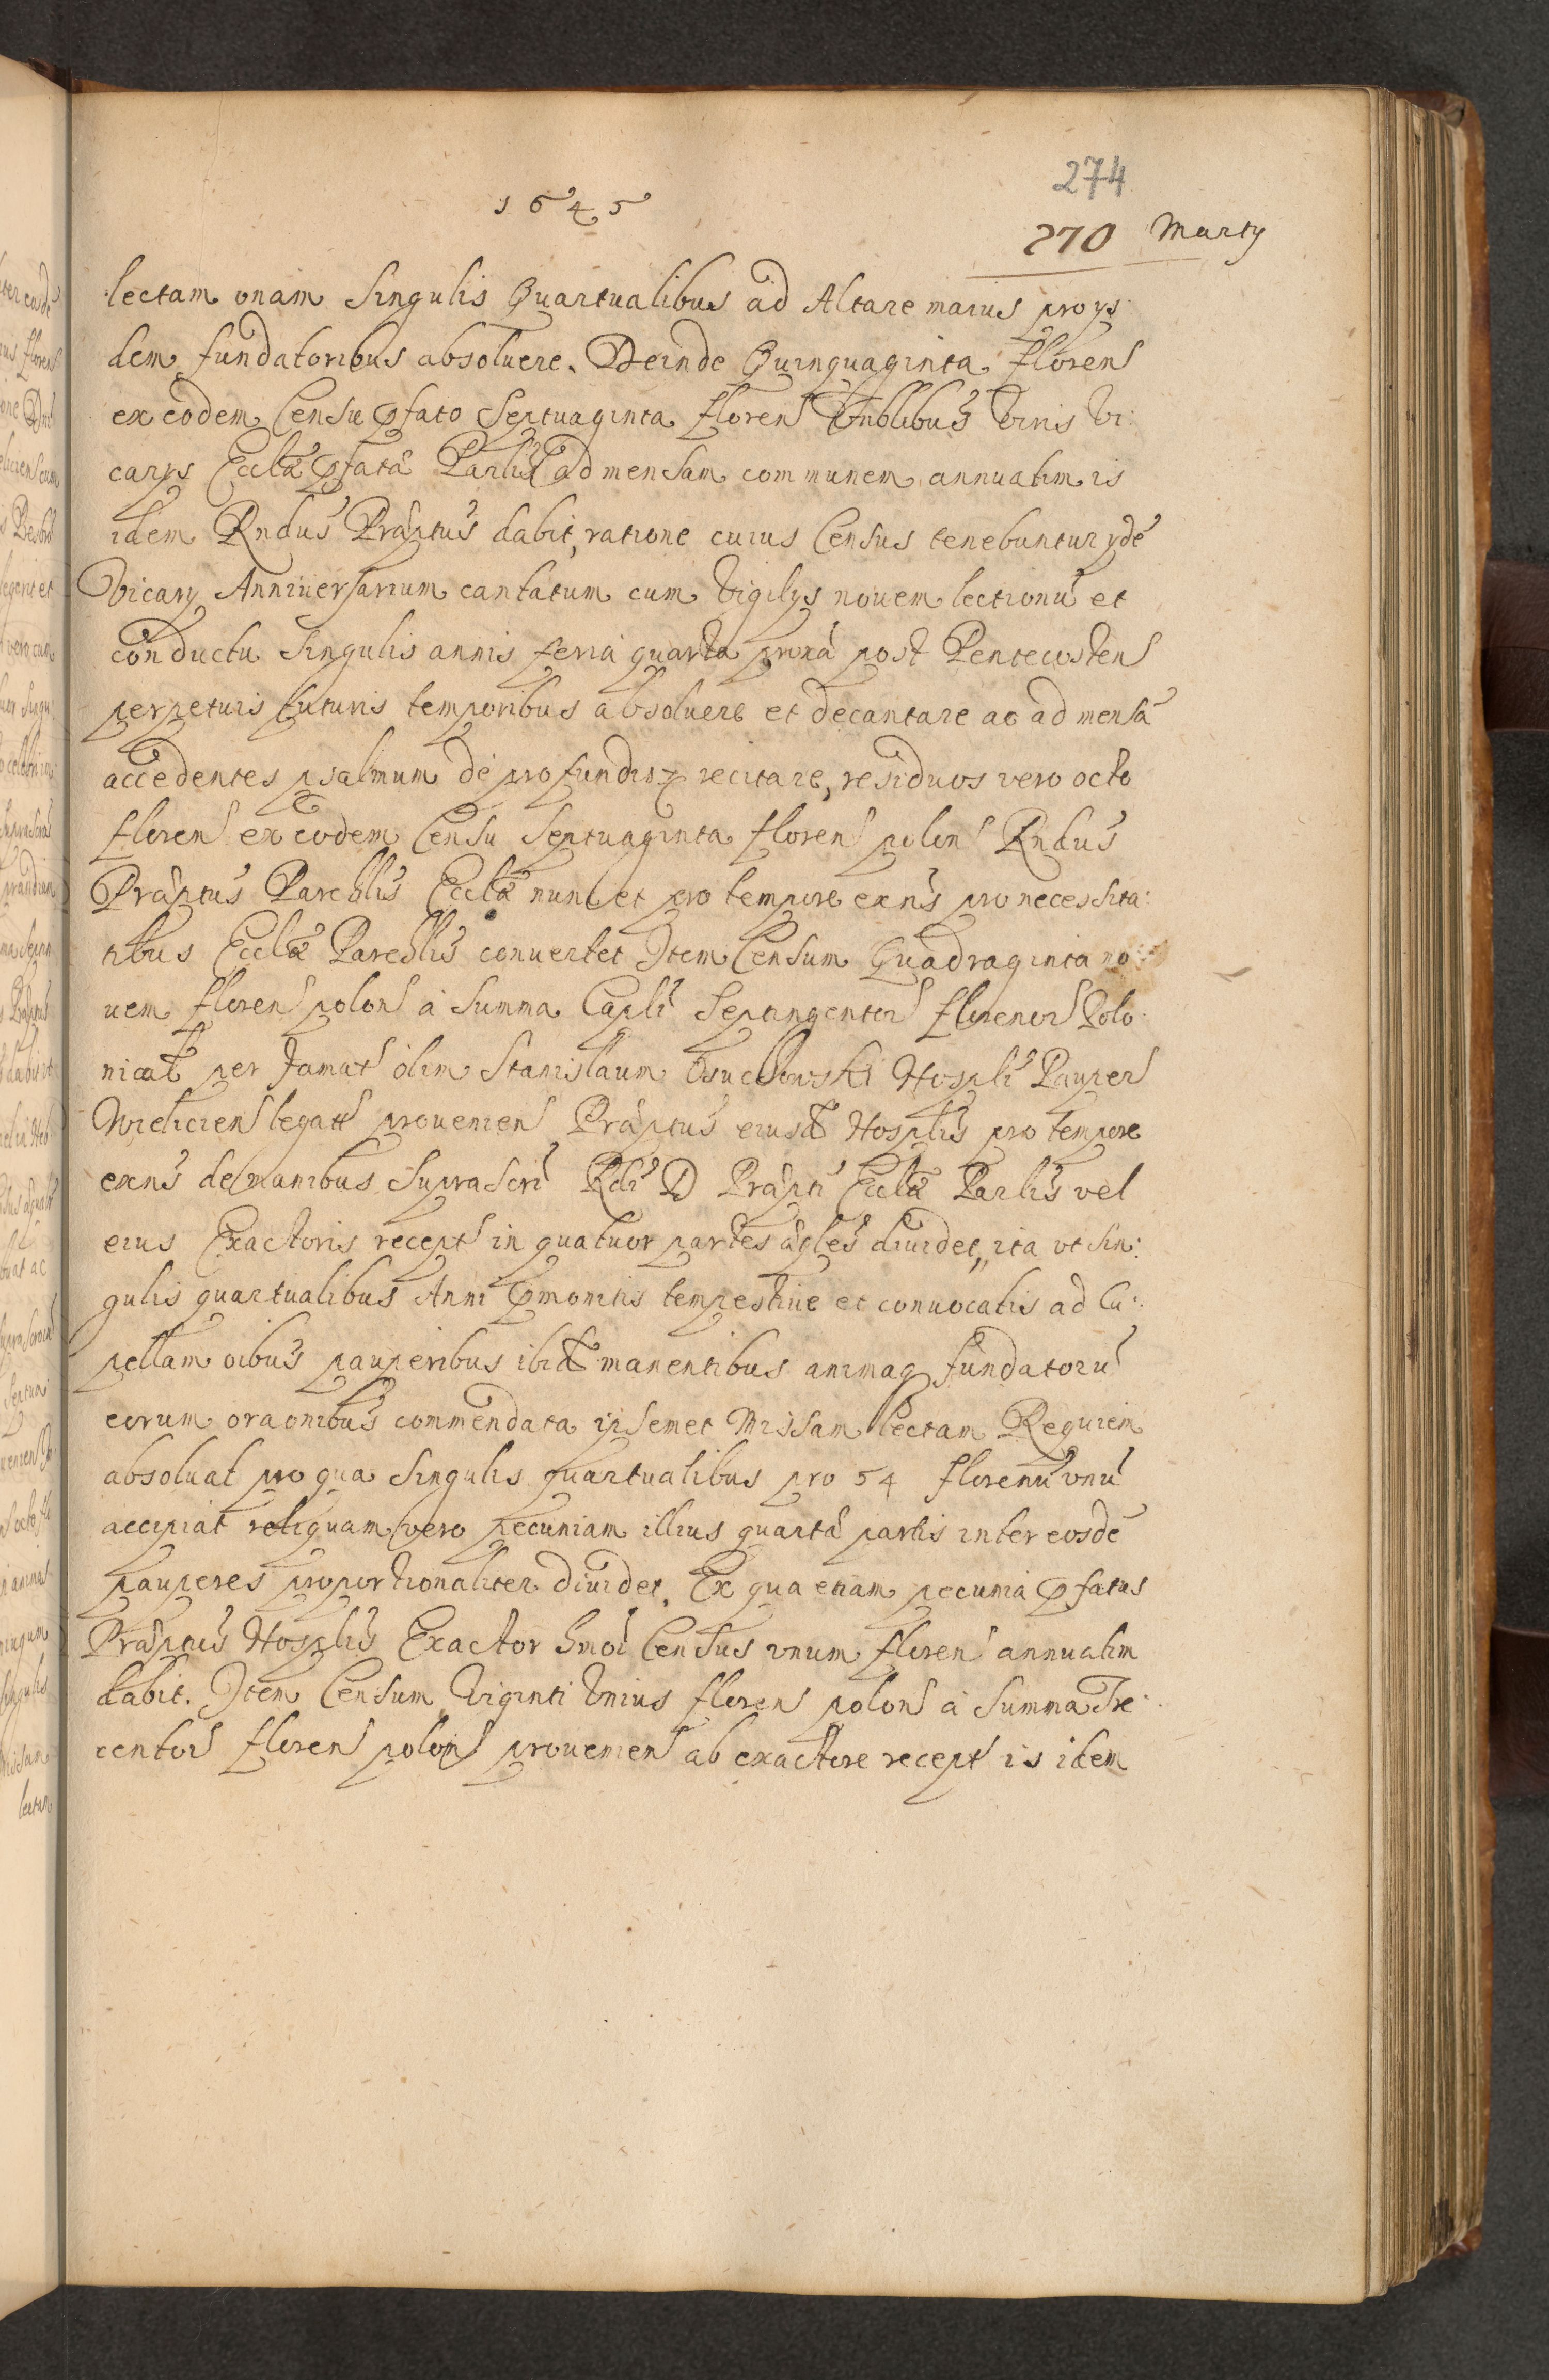 274
1645
270 Marty
lectam unam Singulis Quartualibus ad Altare maius pro ys
dem fundatoribus absoluere. Deinde Quinquaginta floren
ex eodem Censu pfato Septuaginta floren Vnblibus Viris Vi:
carys Ecclæ pfatæ Parlis ad mensam communem annuatim is
idem Rndus Præptus dabit, ratione cuius Census tenebuntur ydē
Vicary Anniuersarium cantatum cum Vigilys nouem lectionū et
conductu Singulis annis feria quarta proxa post Pentecosten
perpetuis futuris temporibus absoluere et decantare ac ad mensā
accedentes psalmum de profundis recitare, residuos vero octo
floren ex eodem Censu Septuaginta floren polon Rndus
Præptus Parchlis Ecclæ nunc et pro tempore exns pro necessita:
tibus Ecclæ Parchlis conuertet Item Censum Quadraginta no:
uem floren polon a Summa Capli Septingentor florenor Polo:
nical per famat olim Stanislaum Osuchowski Hospli Pauper
Wielicien legatt prouenien Præptus eiusd Hosplis pro tempore
exns de manibus Suprascri Rdi D Præpti Ecclæ Parlis vel
eius Exactoris recept in quatuor partes æqles diuidet, ita vt Sin:
gulis quartualibus Anni pmonitis tempestiue et conuocatis ad Ca:
pellam oibus pauperibus ibid manentibus animaq fundatorū
eorum oraonibus commendata ipsemet Missam lectam Requiem
absoluat pro qua Singulis quartualibus pro 54 florenū vnū
accipiat reliquam vero pecuniam illius quartæ partis inter eosdē
pauperes proportionaliter diuidet. Ex qua etiam pecunia pfatus
Præptus Hosplis Exactor hmoi Census vnum floren annuatim
dabit. Item Censum Viginti Vnius floren polon a Summa Tre:
centor floren polon prouenien ab exactore recept is idem